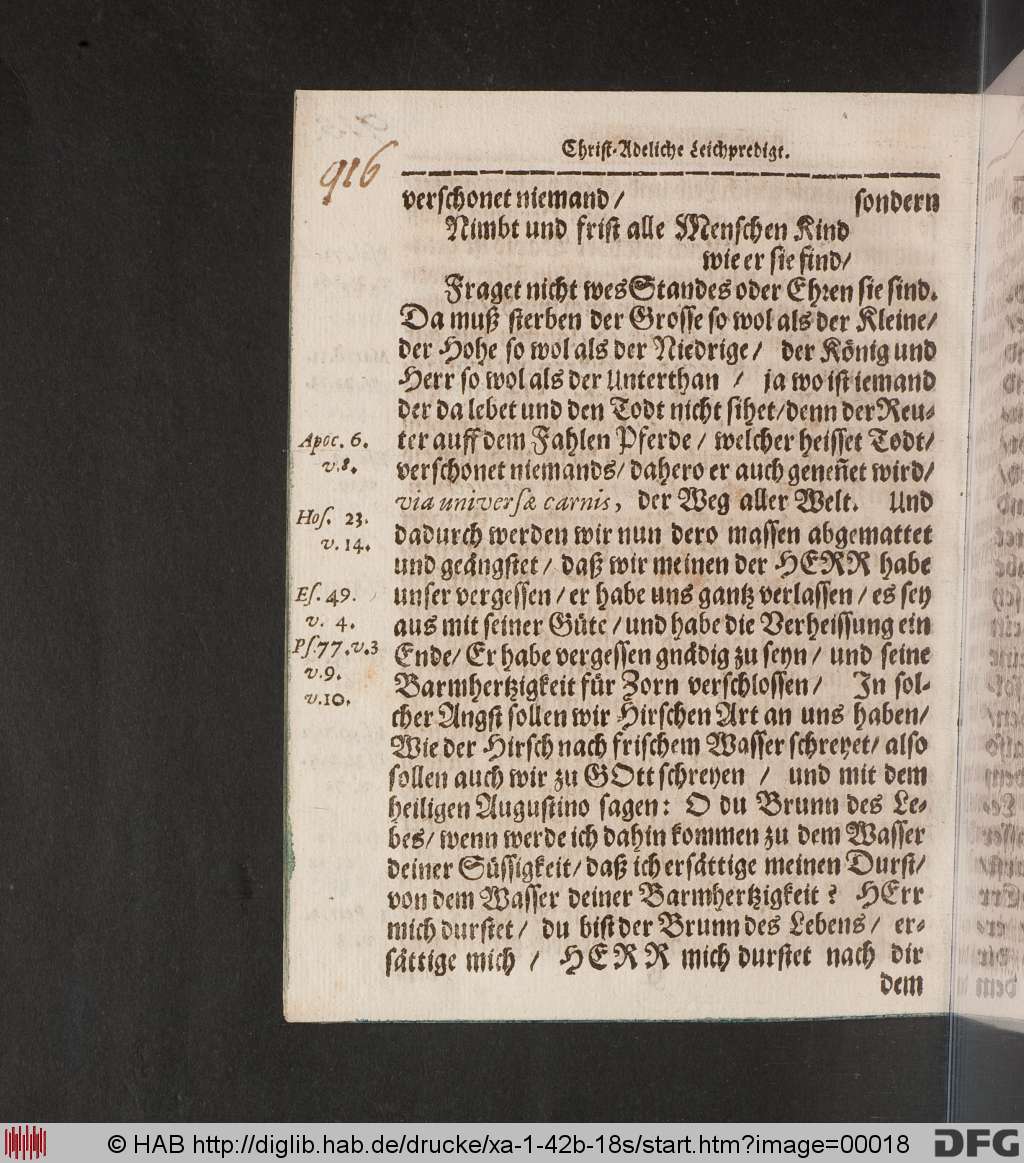 916
Christ-Adeliche Leichpredigt.
verschonet niemand / sondern
Nimbt und frist alle Menschen Kind
wie er sie find/
Fraget nicht wes Standes oder Ehren sie sind.
Da muß sterben der Grosse so wol als der Kleine/
der Hohe so wol als der Niedrige / der König und
Herr so wol als der Unterthan / ja wo ist iemand
der da lebet und den Todt nicht sihet/denn der Reu-
Apoc. 6. ter auff dem Fahlen Pferde / welcher heisset Todt/
v.8. verschonet niemands/ dahero er auch geneñet wird/
via universæ carnis, der Weg aller Welt. Und
Hos. 23. dadurch werden wir nun dero massen abgemattet
v. 14. und geängstet / daß wir meinen der HERR habe
Es. 49. unser vergessen / er habe uns gantz verlassen / es sey
v. 4. aus mit seiner Güte / und habe die Verheissung ein
Ps.77.v.3 Ende/ Er habe vergessen gnädig zu seyn / und seine
v.9. Barmhertzigkeit für Zorn verschlossen / In sol-
v.10. cher Angst sollen wir Hirschen Art an uns haben/
Wie der Hirsch nach frischem Wasser schreyet/ also
sollen auch wir zu GOtt schreyen / und mit dem
heiligen Augustino sagen: O du Brunn des Le-
bes/ wenn werde ich dahin kommen zu dem Wasser
deiner Süssigkeit/ daß ich ersättige meinen Durst/
von dem Wasser deiner Barmhertzigkeit ? HErr
mich durstet / du bist der Brunn des Lebens / er-
sättige mich / HERR mich durstet nach dir
dem
© HAB http://diglib.hab.de/drucke/xa-1-42b-18s/start.htm?image=00018 DFG